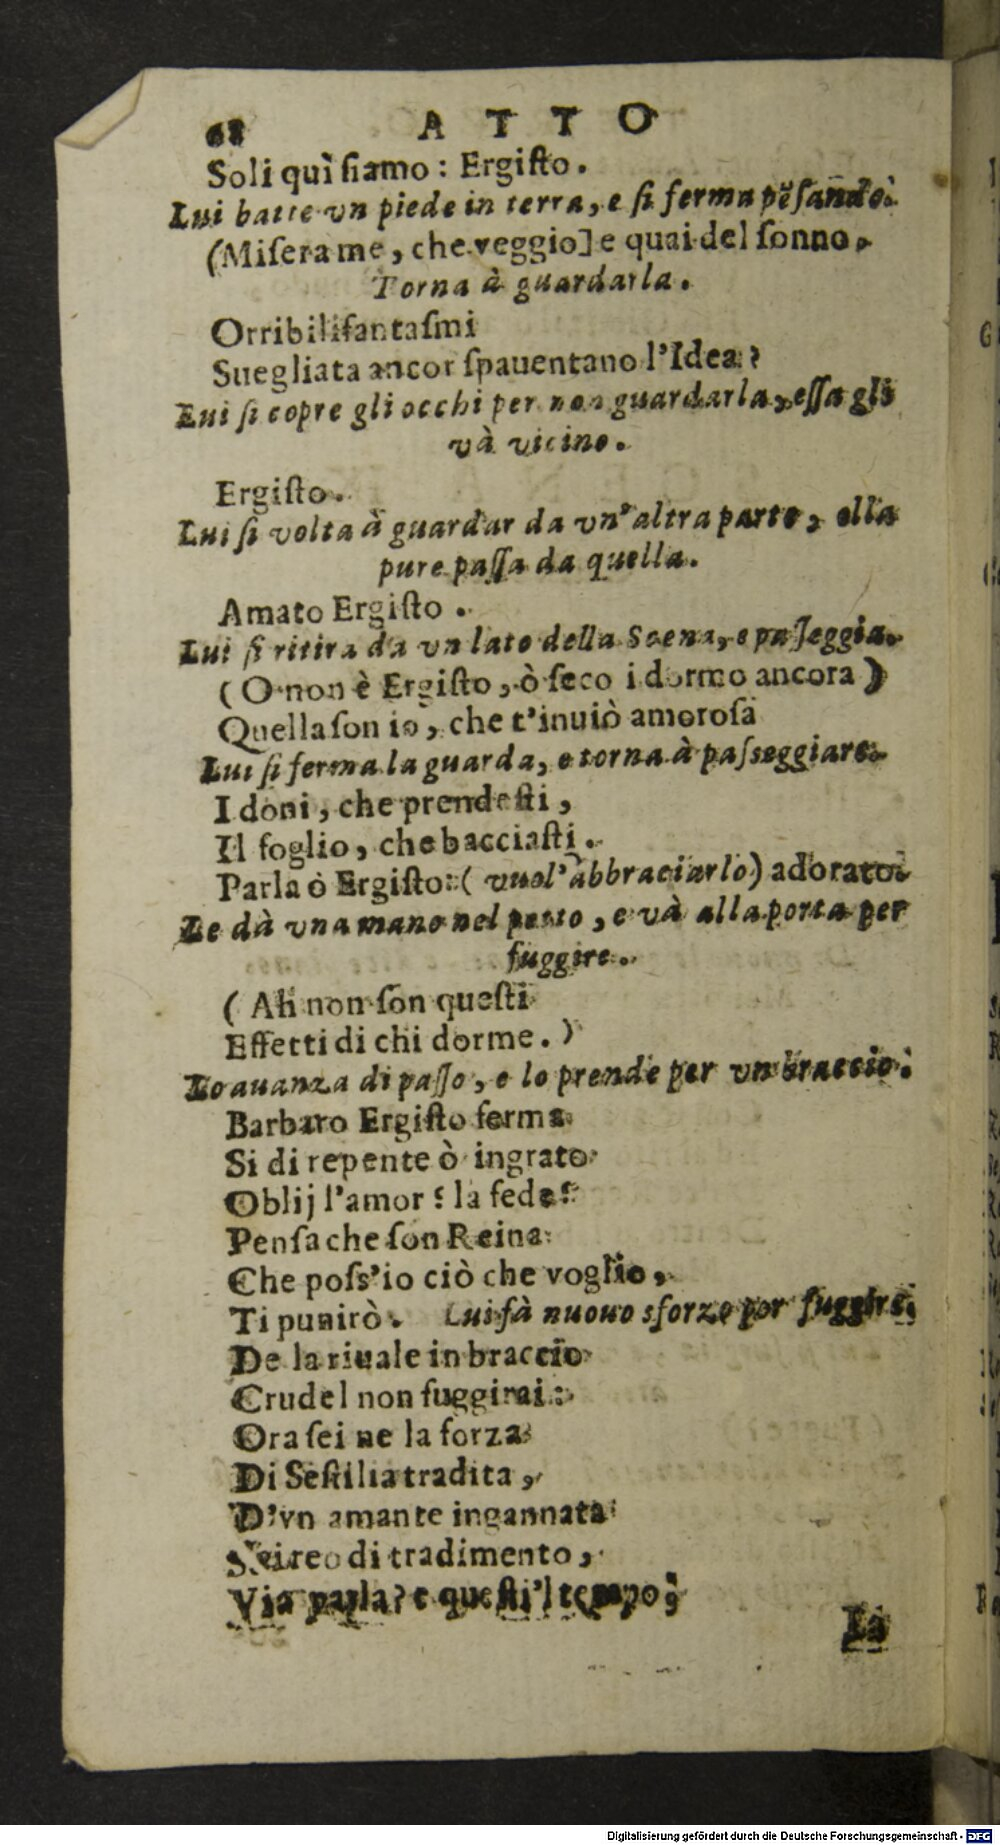 68 ATTO
Soli quì siamo: Ergisto.
Lui batte vn piede in terra, e si ferma pẽsando.
(Misera me, che veggio] e quai del sonno.
Torna à guardarla.
Orribili fantasmi
Suegliata ancor spauentano l'Idea?
Lui si copre gli occhi per non guardarla, essa gli
và vicino.
Ergisto.
Lui si volta à guardar da vn' altra parte, ella
pure passa da quella.
Amato Ergisto.
Lui si ritira da vn lato della Scena, e passeggia.
(O non è Ergisto, ò seco i dormo ancora)
Quella son io, che t'inuiò amorosa
Lui si ferma la guarda, e torna à passeggiare.
I doni, che prendesti,
Il foglio, che bacciasti.
Parla ò Ergisto: (vuol' abbracciarlo) adorato
Le dà vna mano nel petto, e và alla porta per
fuggire.
(Ah non son questi
Effetti di chi dorme.)
Lo auanza di passo, e lo prende per vn braccio.
Barbaro Ergisto ferma
Si di repente ò ingrato
Oblij l'amor? la fede?
Pensa che son Reina
Che poss'io ciò che voglio,
Ti punirò. Lui fà nuouo sforzo per fuggire.
De la riuale in braccio
Crudel non fuggirai:
Ora sei ne la forza
Di Sestilia tradita,
D'vn amante ingannata
Sei reo di tradimento,
Via parla? e questi'l tempo;
La
Digitalisierung gefördert durch die Deutsche Forschungsgemeinschaft - DFG